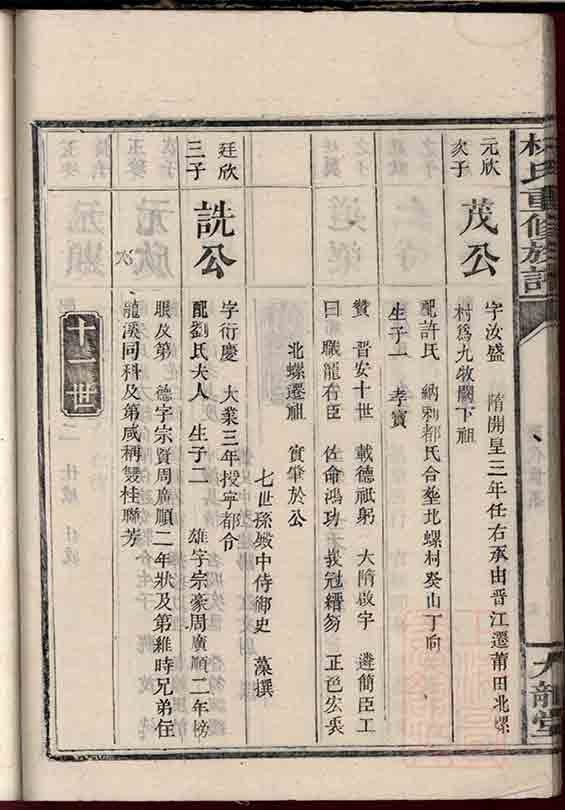 林氏重修族譜
九龍堂
元欣
次子
茂公
字汝盛 隋開皇三年任右承由晋江遷莆田北螺
村爲九牧闕下祖
配許氏 納剌都氏合葬北螺村葵山丁向
生子一 孝寳
贊 晋安十世 載德祇躬 大隋啟宇 遴簡臣工
曰 職龍右臣 佐命鴻功 峩冠縉笏 正色宏奂
北螺遷祖 實肇於公
七世孫殿中侍御史 藻撰
廷欣
三子
詵公
字衍慶 大業三年授宇都令
配劉氏夫人 生子二 雄字宗豪周廣順二年榜
眼及第 德字宗賢周廣順二年狀及第維時兄弟任
龍溪同科及第咸稱雙桂聯芳
十二世